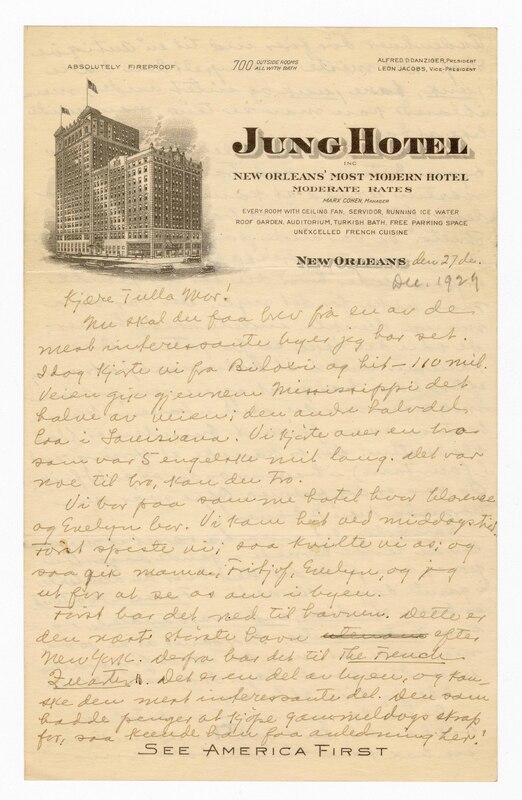 ABSOLUTELY FIREPROOF
700 OUTSIDE ROOMS ALL WITH BATH
ALFRED D. DANZIGER, PRESIDENT
LEON JACOBS, VICE-PRESIDENT
JUNG HOTEL
INC
NEW ORLEANS' MOST MODERN HOTEL
MODERATE RATES
MARX COHEN, MANAGER
EVERY ROOM WITH CEILING FAN, SERVIDOR, RUNNING ICE WATER
ROOF GARDEN, AUDITORIUM, TURKISH BATH, FREE PARKING SPACE
UNEXCELLED FRENCH CUISINE
NEW ORLEANS den 27 de.
Des. 1929
Kjære Tulla Mor!
Nu skal du faa brev fra en av de
mest interessante byer jeg har set.
Idag kjørte vi fra Biloxi og hit – 110 mil.
Veien gik gjennem Mississippi det
halve av veien; den andre halvdel
laa i Louisiana. Vi kjørte over en bro
som var 5 engelske mil lang. Det var
noe til bro, kan du tro.
Vi bor paa samme hotel hvor Clarence
og Evelyn bor. Vi kom hit ved middagstid.
Først spiste vi; saa kvilte vi os; og
saa gik mama, Fritjof, Evelyn, og jeg
ut for at se os om i byen.
Først bar det ned til havnen. Dette er
den næst største havn efter
New York. Derfra bar det til The French
Quarter. Det er en del av byen, og kan-
ske den mest interessante del. Den som
hadde penger at kjøpe gammeldags skrap
for, saa kunde han faa anledning her!
SEE AMERICA FIRST